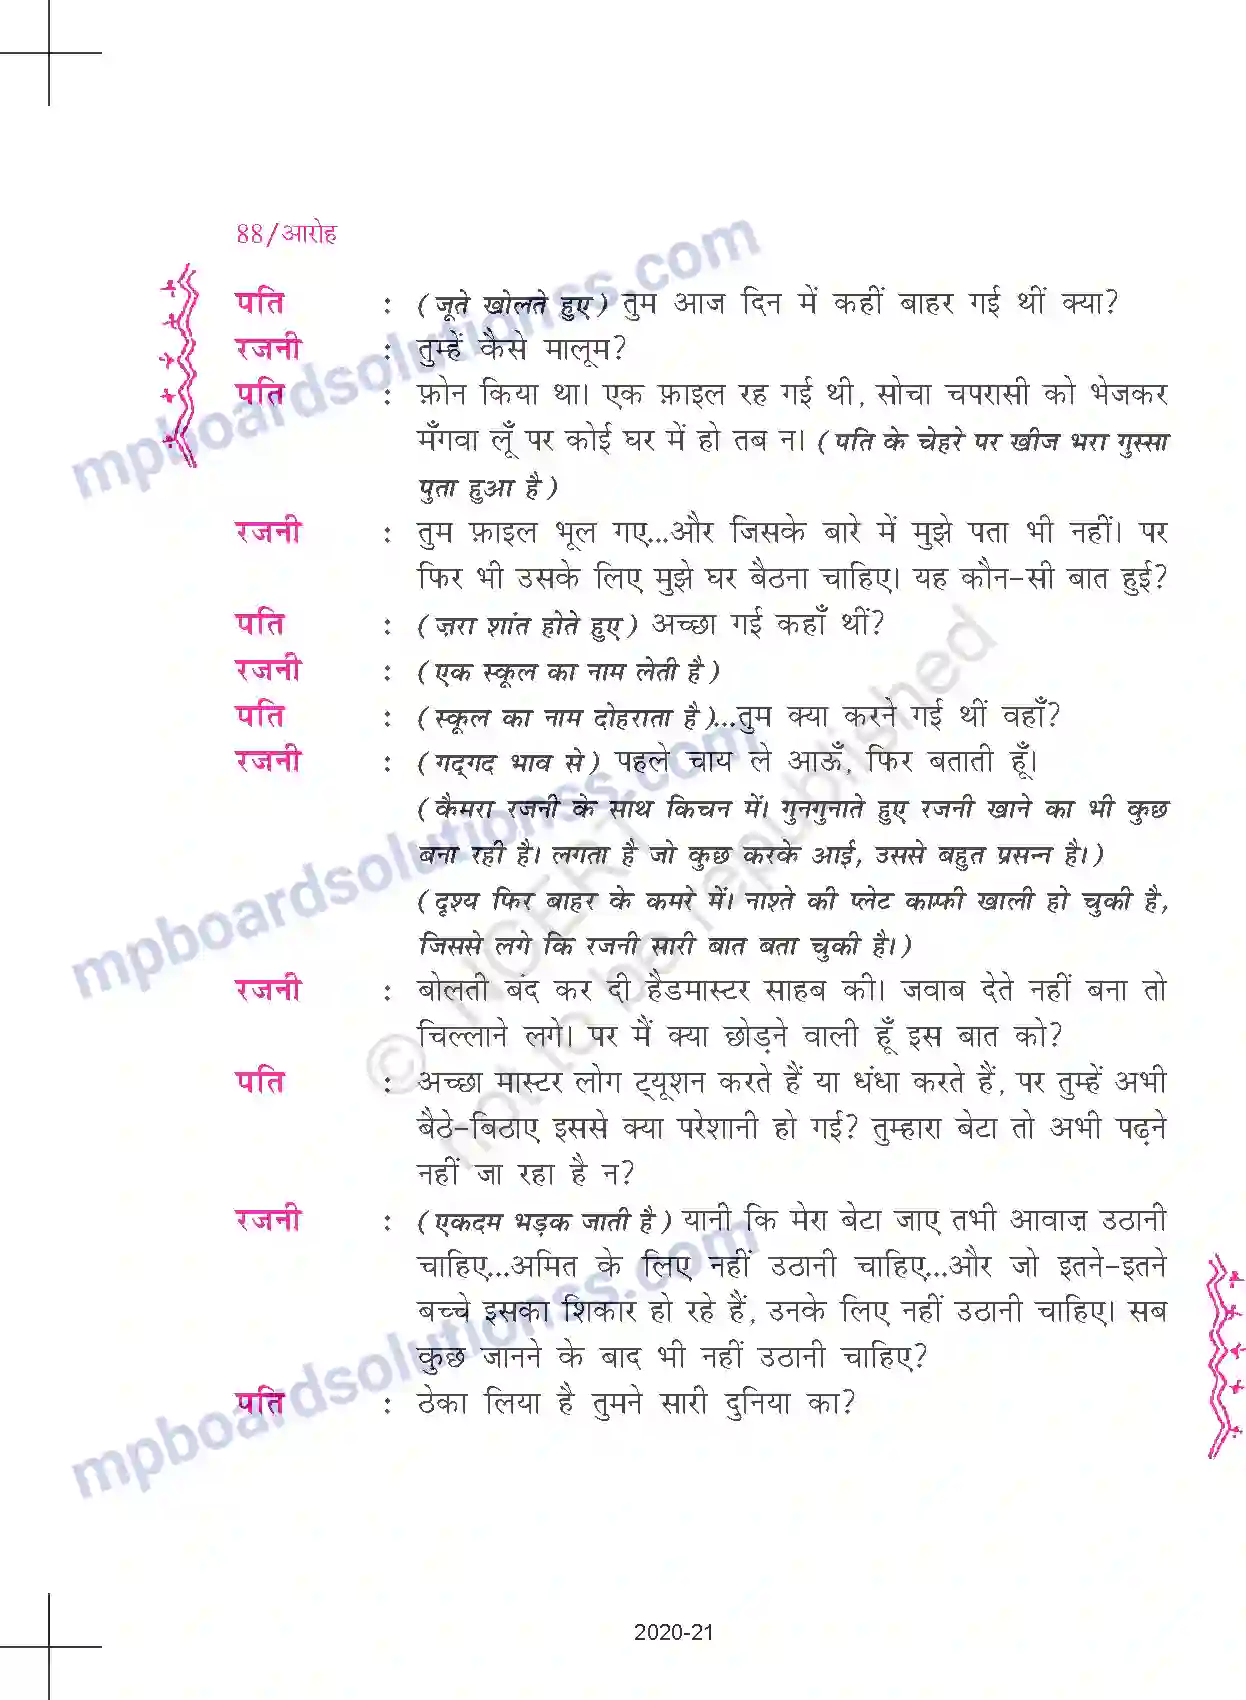 88/आरोह
पति : (जूते खोलते हुए) तुम आज दिन में कहीं बाहर गई थीं क्या?
रजनी : तुम्हें कैसे मालूम?
पति : फ़ोन किया था। एक फ़ाइल रह गई थी, सोचा चपरासी को भेजकर
मँगवा लूँ पर कोई घर में हो तब न। (पति के चेहरे पर खीज भरा गुस्सा
पुता हुआ है)
रजनी : तुम फ़ाइल भूल गए...और जिसके बारे में मुझे पता भी नहीं। पर
फिर भी उसके लिए मुझे घर बैठना चाहिए। यह कौन-सी बात हुई?
पति : (ज़रा शांत होते हुए) अच्छा गई कहाँ थीं?
रजनी : (एक स्कूल का नाम लेती है)
पति : (स्कूल का नाम दोहराता है)...तुम क्या करने गई थीं वहाँ?
रजनी : (गद्गद भाव से) पहले चाय ले आऊँ, फिर बताती हूँ।
(कैमरा रजनी के साथ किचन में। गुनगुनाते हुए रजनी खाने का भी कुछ
बना रही है। लगता है जो कुछ करके आई, उससे बहुत प्रसन्न है।)
(दृश्य फिर बाहर के कमरे में। नाश्ते की प्लेट काफ़ी खाली हो चुकी है,
जिससे लगे कि रजनी सारी बात बता चुकी है।)
रजनी : बोलती बंद कर दी हैडमास्टर साहब की। जवाब देते नहीं बना तो
चिल्लाने लगे। पर मैं क्या छोड़ने वाली हूँ इस बात को?
पति : अच्छा मास्टर लोग ट्यूशन करते हैं या धंधा करते हैं, पर तुम्हें अभी
बैठे-बिठाए इससे क्या परेशानी हो गई? तुम्हारा बेटा तो अभी पढ़ने
नहीं जा रहा है न?
रजनी : (एकदम भड़क जाती है) यानी कि मेरा बेटा जाए तभी आवाज़ उठानी
चाहिए...अमित के लिए नहीं उठानी चाहिए...और जो इतने-इतने
बच्चे इसका शिकार हो रहे हैं, उनके लिए नहीं उठानी चाहिए। सब
कुछ जानने के बाद भी नहीं उठानी चाहिए?
पति : ठेका लिया है तुमने सारी दुनिया का?
2020-21
mpboardsolutionss.com
mpboardsolutionss.com
mpboardsolutionss.com
© NCERT
not to be republished